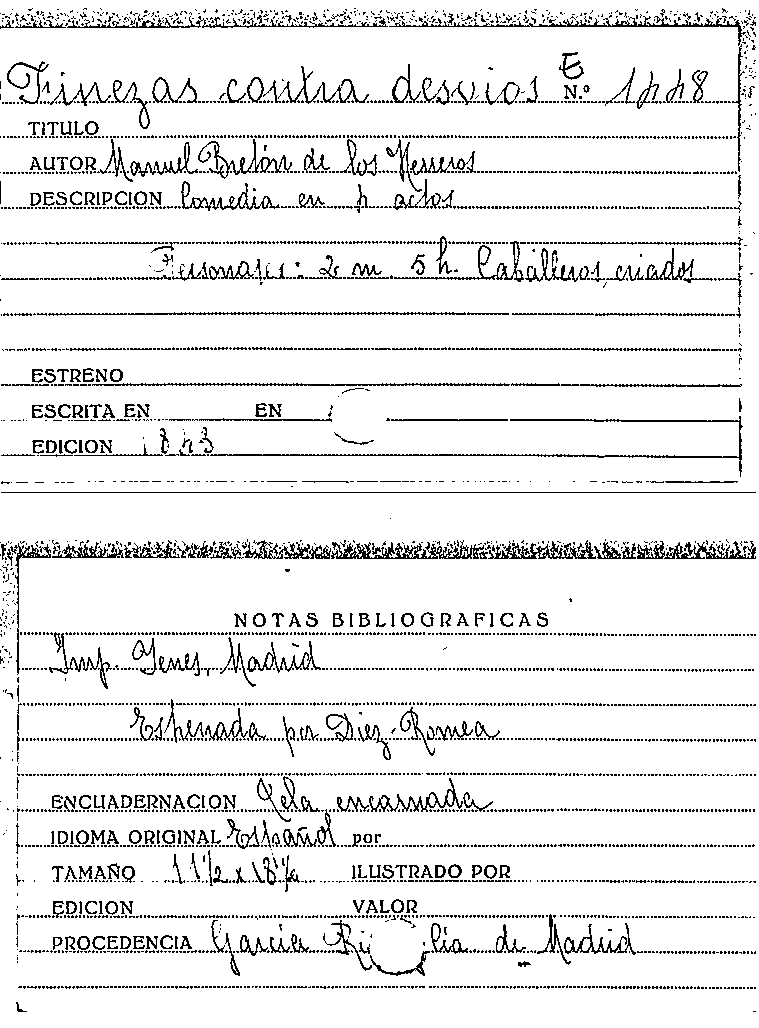 Finezas contra desvios E N.º 1448
TITULO
AUTOR Manuel Bretón de los Herreros
DESCRIPCION Comedia en 4 actos
Personajes: 2 m. 5 h. Caballeros, criados
ESTRENO
ESCRITA EN EN
EDICION 1843
NOTAS BIBLIOGRAFICAS
Imp. Yenes, Madrid
Estrenada por Diez-Romea
ENCUADERNACION Tela encarnada
IDIOMA ORIGINAL Español por
TAMAÑO 11½ x 18½ ILUSTRADO POR
EDICION VALOR
PROCEDENCIA García de Madrid